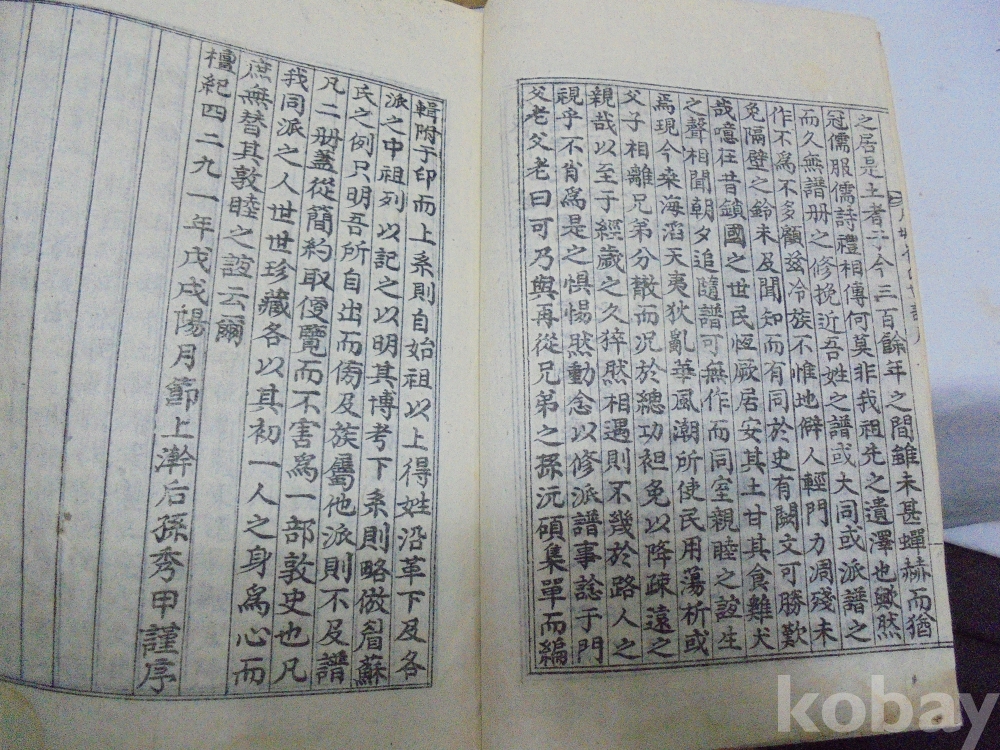 之居是土者于今三百餘年之間雖未甚蟬赫而猶
冠儒服儒詩禮相傳何莫非我祖先之遺澤也歟然
而久無譜册之修挽近吾姓之譜或大同或派譜之
作不爲不多顧玆冷族不惟地僻人輕門力凋殘未
免隔壁之鈴未及聞知而有同於史有闕文可勝歎
哉噫在昔鎖國之世民恆厥居安其土甘其食雞犬
之聲相聞朝夕追隨譜可無作而同室親睦之誼生
焉現今桑海滔天夷狄亂華風潮所使民用蕩析或
父子相離兄弟分轍而况於緦功袒免以降疎遠之
親哉以至于經歲之久猝然相遇則不幾於路人之
視乎不肖爲是之惧惕然動念以修派譜事諗于門
父老父老曰可乃與再從兄弟之孫沅碩集單而編
輯附于印而上系則自始祖以上得姓沿革下及各
派之中祖列以記之以明其博考下系則略倣眉蘇
氏之例只明吾所自出而傍及族屬他派則不及譜
凡二册蓋從簡約取便覽而不害爲一部敦史也凡
我同派之人世世珍藏各以其初一人之身爲心而
庶無替其敦睦之誼云爾
檀紀四二九一年戊戌陽月節上澣后孫秀甲謹序
kobay